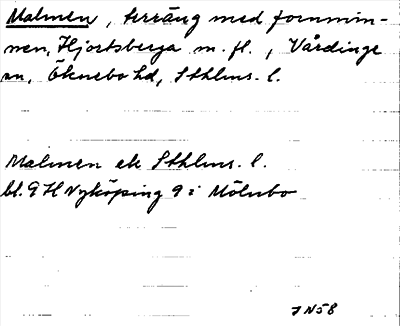 Malmen, terräng med fornmin-
nen, Hjortsberga m. fl., Vårdinge
sn, Öknebo hd, Sthlms. l.
Malmen ek Sthlms. l.
bl. 9 H Nyköping 9 i Mölnbo
JN58